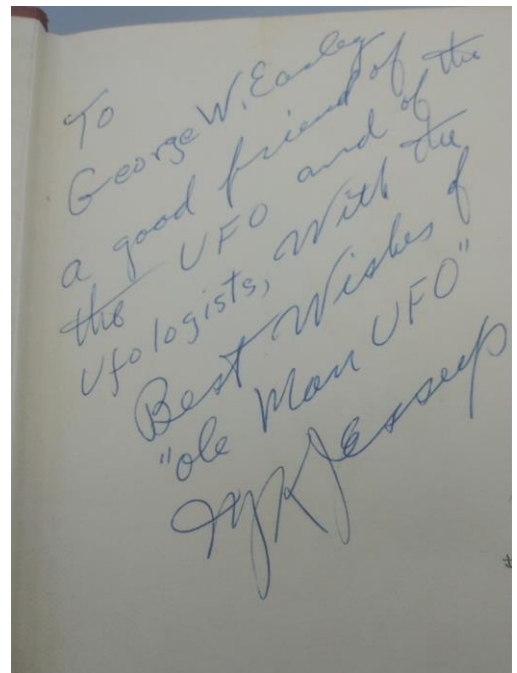 To
George W. Earley
a good friend of
the UFO and of the
Ufologists, With the
Best Wishes of
"ole Man UFO"
MKJessup